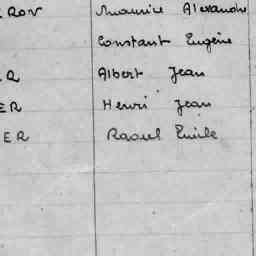 RON Maurice Alexandre
Constant Eugène
R Albert Jean
ER Henri Jean
ER Raoul Emile